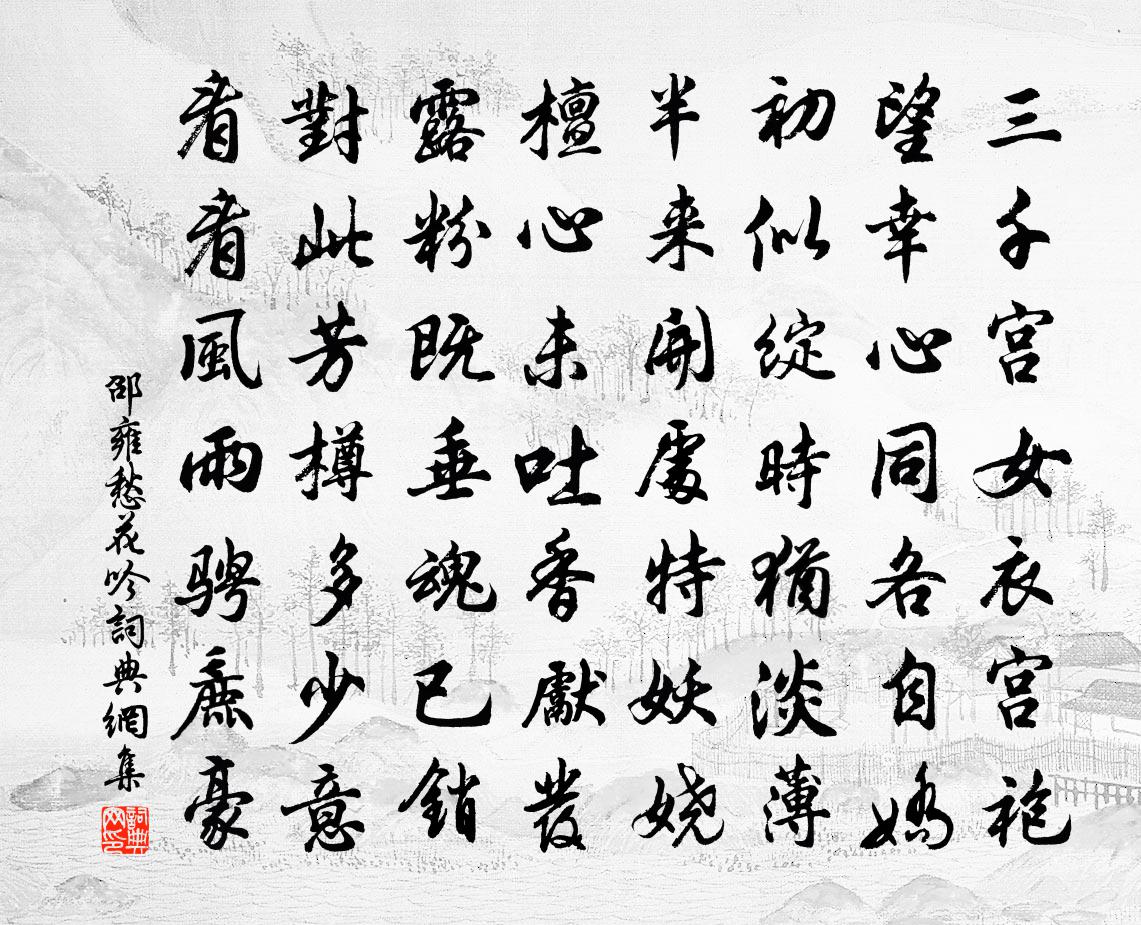 三千宮女衣宮袍
望幸心同各自嬌
初似綻時猶淡薄
半来開處特妖嬈
檀心未吐香獻發
露粉既垂魂已銷
對此芳樽多少意
看看風雨騁麁豪
邵雍愁花吟詞典網集
詞典网印